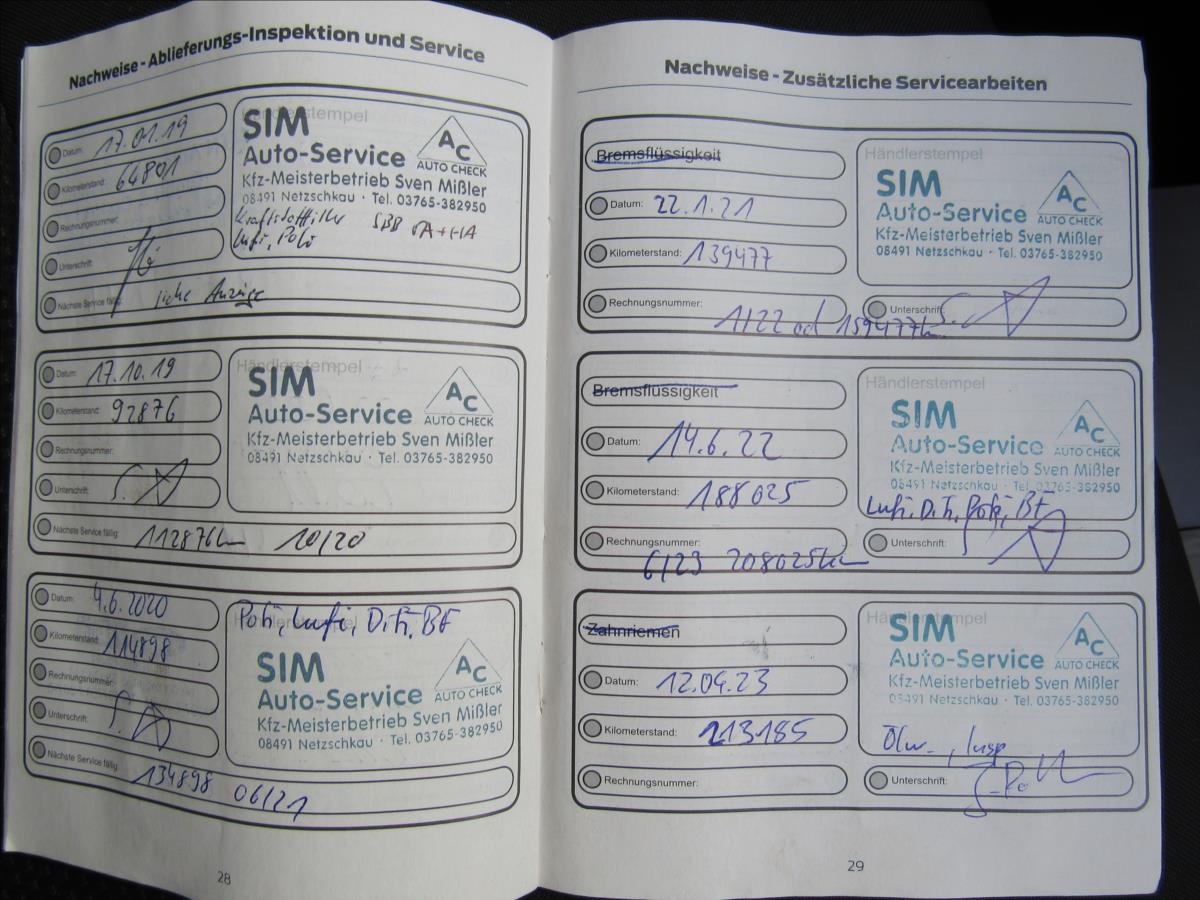 Nachweise - Ablieferungs-Inspektion und Service
Händlerstempel
Datum: 17.01.19
Kilometerstand: 64801
Rechnungsnummer:
Unterschrift:
Nächste Service fällig: siehe Anzeige
SIM
Auto-Service
AC
AUTO CHECK
Kfz-Meisterbetrieb Sven Mißler
08491 Netzschkau · Tel. 03765-382950
Kraftstofffilter SBB VA+HA
Lufi, Poli
Datum: 17.10.19
Kilometerstand: 92876
Rechnungsnummer:
Unterschrift:
Nächste Service fällig: 112876km 10/20
Händlerstempel
SIM
Auto-Service
AC
AUTO CHECK
Kfz-Meisterbetrieb Sven Mißler
08491 Netzschkau · Tel. 03765-382950
Datum: 4.6.2020
Kilometerstand: 114898
Rechnungsnummer:
Unterschrift:
Nächste Service fällig: 134898 06/21
Händlerstempel
Poli, Lufi, D.Fi, BF
SIM
Auto-Service
AC
AUTO CHECK
Kfz-Meisterbetrieb Sven Mißler
08491 Netzschkau · Tel. 03765-382950
28
Nachweise - Zusätzliche Servicearbeiten
Bremsflüssigkeit
Datum: 22.1.21
Kilometerstand: 139477
Rechnungsnummer:
1/22 od 159477km
Händlerstempel
SIM
Auto-Service
AC
AUTO CHECK
Kfz-Meisterbetrieb Sven Mißler
08491 Netzschkau · Tel. 03765-382950
Unterschrift:
Bremsflüssigkeit
Datum: 14.6.22
Kilometerstand: 188025
Rechnungsnummer:
6/23 208025km
Händlerstempel
SIM
Auto-Service
AC
AUTO CHECK
Kfz-Meisterbetrieb Sven Mißler
08491 Netzschkau · Tel. 03765-382950
Lufi, D.Fi, Poli, BF
Unterschrift:
Zahnriemen
Datum: 12.04.23
Kilometerstand: 213185
Rechnungsnummer:
Händlerstempel
SIM
Auto-Service
AC
AUTO CHECK
Kfz-Meisterbetrieb Sven Mißler
08491 Netzschkau · Tel. 03765-382950
Ölw-, Insp
Unterschrift:
29